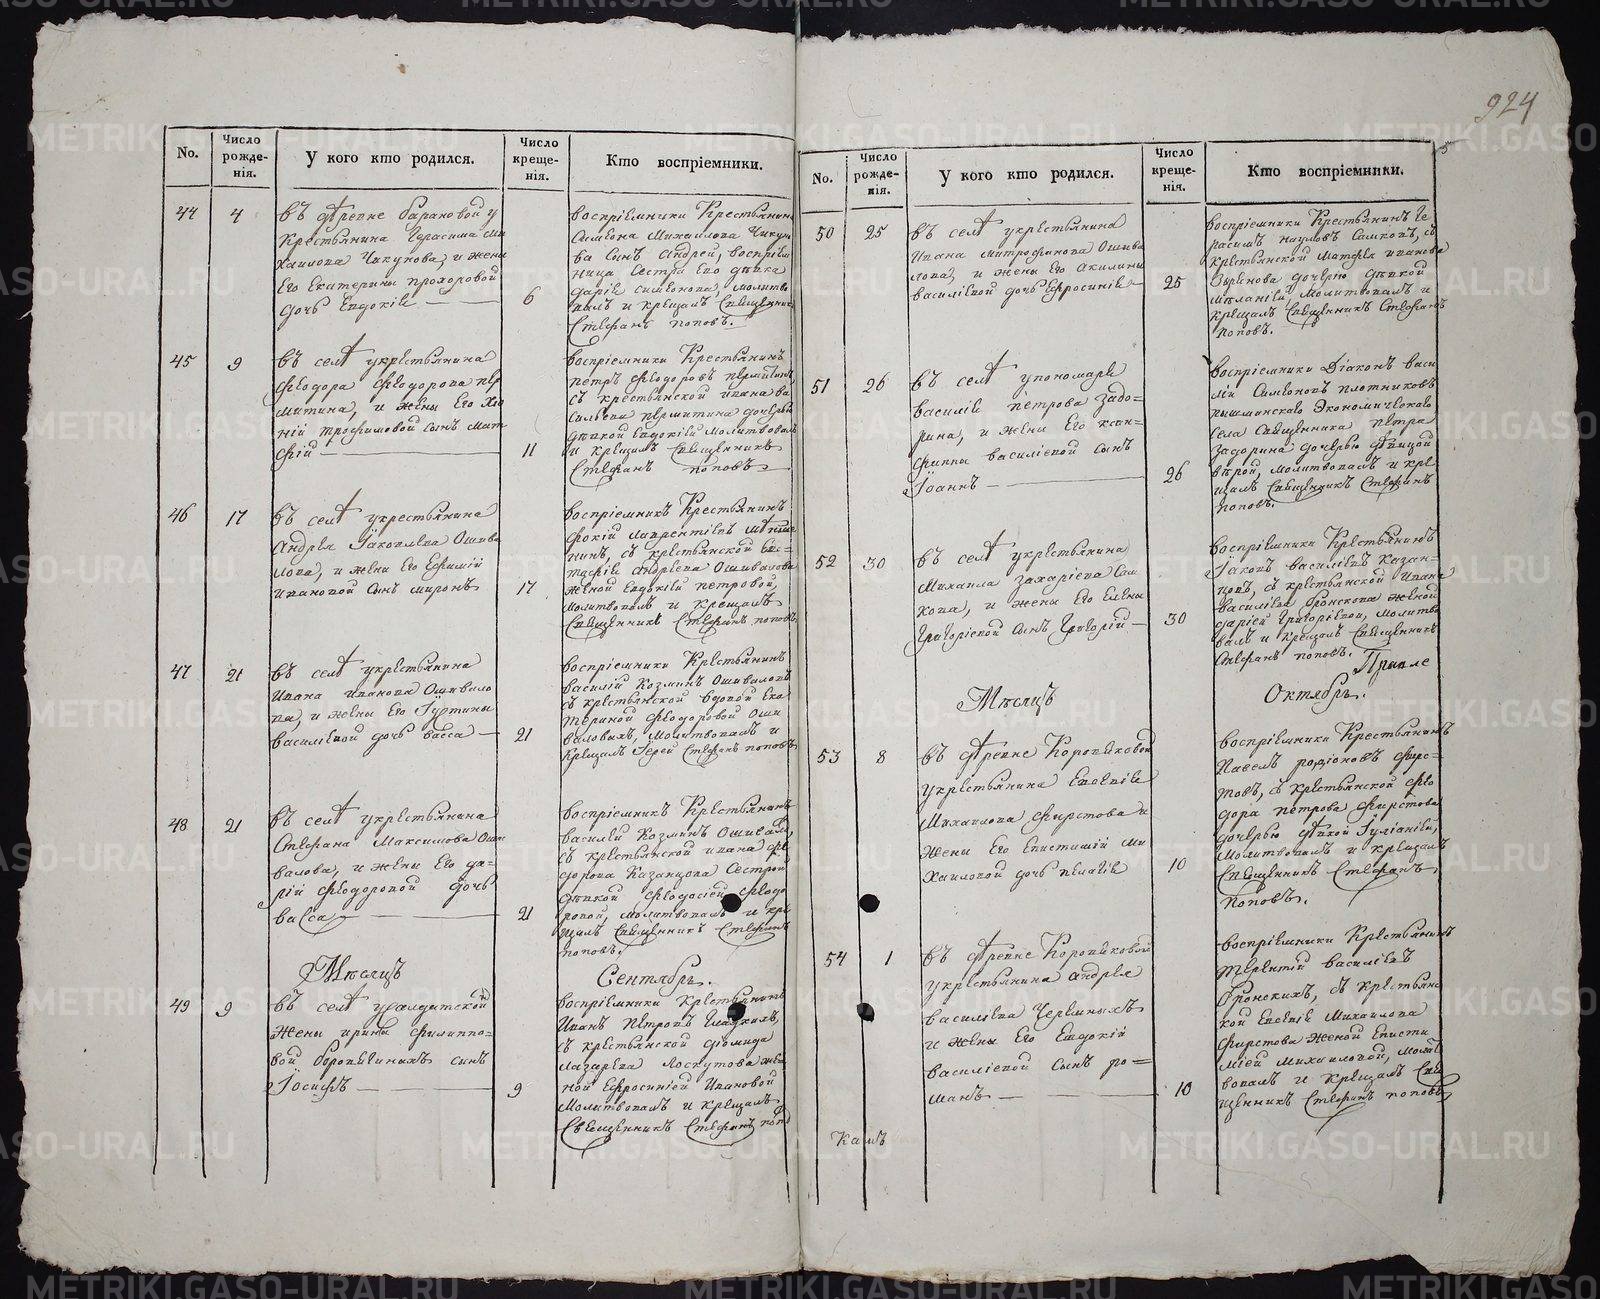 924
No.
Число рожде-нія.
У кого кто родился.
Число креще-нія.
Кто воспріемники.
44
4
въ деревне барановой у
крестьянина Герасима Ми
хаилова Чикунова, и жены
Его Екатерины прохоровой
дочь Евдокіе
6
воспріемники крестьянина
Симеона Михаилова Чикун
ва сынъ Андрей, воспріем
ница сестра Его девка
дарія симеонова, молитво
валъ и крещалъ священник
Стефанъ поповъ.
45
9
въ селе укрестьянина
феодора феодорова пер
митина, и жены Его
трофимовой сынъ мат
фій
11
воспріемники Крестьянинъ
петръ феодоровъ пермитинъ,
съ крестьянской ивана ва
сильева пермитина дочерью
девкой Евдокіей молитвовалъ
и крещалъ священникъ
Стефанъ поповъ
46
17
въ селе укрестьянина
Андрея Іаковлева Ошива
лова, и жены Его Ефимій
ивановой сынъ миронъ
17
воспріемникъ Крестьянинъ
фокій лаврентіевъ
нинъ, съ крестьянской Евс=
тафіе андреева Ошивалова
женой Евдокіей петровой,
молитвовалъ и крещалъ
священникъ Стефанъ поповъ
47
21
въ селе укрестьянина
Ивана иванова Ошивало
ва, и жены Его Іустины
василіевой дочь васса
21
воспріемники Крестьянинъ
василій Козминъ Ошиваловъ
съ крестьянской вдовой Ека
териной феодоровой Оши
валовыхъ, молитвовалъ и
крещалъ Іерей Стефанъ поповъ
48
21
въ селе укрестьянина
Стефана Максимова Оши
валова, и жены Его да=
рій феодоровой дочь
васса
21
воспріемникъ Крестьянинъ
василей Козминъ Ошивалов,
съ крестьянской ивана фе
дорова Казанцова сестрой
девкой феодосіей феодо
ровой, молитвовалъ и кре
щалъ священникъ Стефанъ
поповъ.
Месяцъ
Сентябрь.
49
9
въ селе усалдатской
жены ирины филиппо=
вой воропитиныхъ сынъ
Іосифъ
9
воспріемники крестьянинъ
Иванъ петровъ Гладкихъ,
съ крестьянской діомида
лазарева Лоскутова же
ной Ефросиніей Ивановой
Молитвовалъ и крещалъ
Священникъ Стефанъ попо
No.
Число рожде-нія.
У кого кто родился.
Число креще-нія.
Кто воспріемники.
50
25
въ селе укрестьянина
Ивана митрофанова Ошива
лова, и жены Его Акилины
василіевой дочь Ефросиніе
25
воспріемники Крестьянинъ Ге
расимъ наумовъ Самковъ, съ
крестьянской матфея иванова
Зырянова дочерію девкой
меланіей, молитвовалъ и
крещалъ Священникъ Стефанъ
поповъ.
51
26
въ селе упономаря
василіе петрова задо=
рина, и жены Его ксен=
фиппы василіевой сынъ
Іоаннъ
26
воспріемники Діаконъ васи
лій Симеоновъ плотниковъ
пышминскаго Экономическаго
села священника петра
задорина дочерью девицой
верой, молитвовалъ и кре
щалъ священникъ Стефанъ
поповъ.
52
30
въ селе укрестьянина
Михаила захаріева Сам
кова, и жены Его Елены
Григоріевой сынъ Григорій
30
воспріемники Крестьянинъ
Іаковъ василіевъ Казан=
цовъ, съ крестьянской ивана
василіева бронскова женой
даріей Григоріевой, молитво
валъ и крещалъ священникъ
Стефанъ поповъ.
Месяцъ
Октябрь.
53
8
въ деревне Коровяковой
укрестьянина Евсевіе
Михаилова фирстова и
жены Его Епистиміи ми
хаиловой дочь пелагіе
10
воспріемники Крестьянинъ
Павелъ родіоновъ фирс=
товъ, съ крестьянской фео
дора петрова фирстова
дочерью девкой Іуліаніей,
молитвовалъ и крещалъ
священникъ Стефанъ
поповъ.
54
1
въ деревне Коровяковой
укрестьянина андрея
василіева Черемныхъ
и жены Его Евдокій
василіевой сынъ ро=
манъ
10
воспріемники Крестьянинъ
терентій василіевъ
бронскихъ, съ крестьянс
кой Евсевіе михаилова
фирстова женой Еписти
міей михаиловой, молит
вовалъ и крещалъ свя
щенникъ Стефанъ поповъ
Камъ